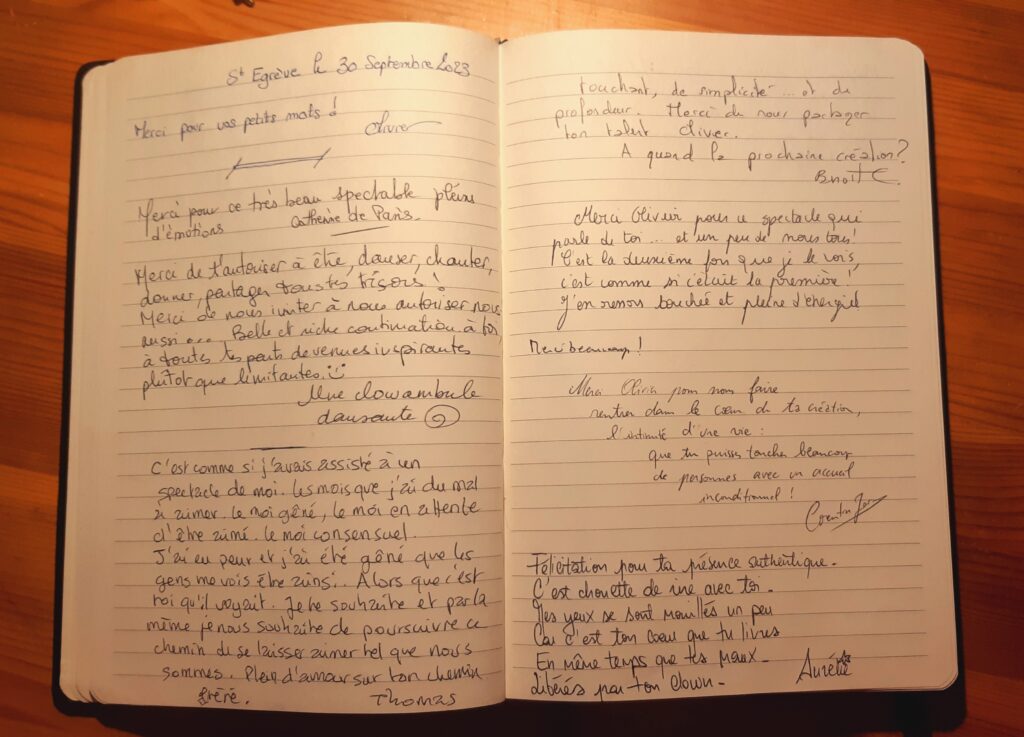 St Egrève le 30 Septembre 2023
Merci pour vos petits mots !
Olivier
Merci pour ce très beau spectable pleins
d'émotions Catherine de Paris.
Merci de t'autoriser à être, danser, chanter,
donner, partager tous tes trésors !
Merci de nous inviter à nous autoriser nous
aussi ... Belle et riche continuation à toi,
à toutes tes parts devenues inspirantes
plutôt que limitantes.
Une clowambule
dansante
C'est comme si j'avais assisté à un
spectacle de moi. Les mois que j'ai du mal
à aimer. Le moi gêné, le moi en attente
d'être aimé. Le moi consensuel.
J'ai eu peur et j'ai été gêné que les
gens me vois être ainsi.. Alors que c'est
toi qu'il voyait. Je te souhaite et par la
même je nous souhaite de poursuivre ce
chemin de se laisser aimer tel que nous
sommes. Plein d'amour sur ton chemin
frère. Thomas
touchant, de simplicité ... et de
profondeur. Merci de nous partager
ton talent Olivier.
A quand la prochaine création ?
Benoît C.
Merci Olivier pour ce spectacle qui
parle de toi ... et un peu de nous tous !
C'est la deuxième fois que je le vois,
c'est comme si c'était la première !,
J'en ressors touchée et pleine d'energie
Merci beaucoup !
Merci Olivier pour nous faire
rentrer dans le cœur de ta création,
l'intimité d'une vie :
que tu puisses toucher beaucoup
de personnes avec un accueil
inconditionnel !
Corentin
Félicitation pour ta présence authentique.
C'est chouette de rire avec toi.
Mes yeux se sont mouillés un peu
Car c'est ton cœur que tu livres
En même temps que tes maux.
Libérés par ton clown. Aurélie